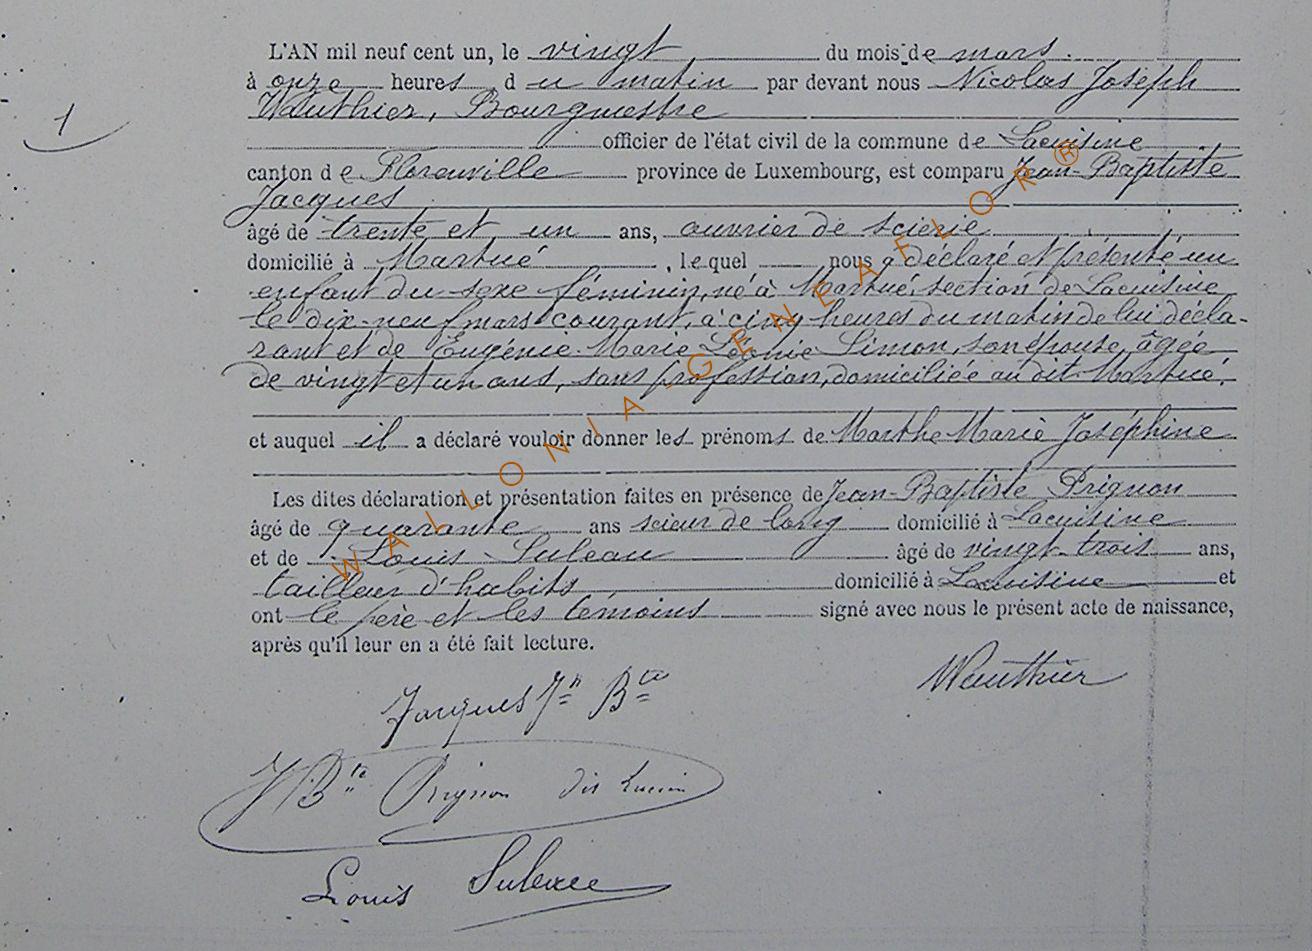 L'AN mil neuf cent un, le vingt du mois de mars
à onze heures du matin par devant nous Nicolas Joseph
Wauthier, Bourgmestre
1
officier de l'état civil de la commune de Lacuisine
canton de Florenville province de Luxembourg, est comparu Jean-Baptiste
Jacques
âgé de trente et un ans, ouvrier de scierie
domicilié à Martué, lequel nous a déclaré et présenté un
enfant du sexe féminin, né à Martué, section de Lacuisine
le dix-neuf mars courant, à cinq heures du matin de lui décla-
rant et de Eugénie Marie Léonie Simon, son épouse, âgée
de vingt et un ans, sans profession, domiciliée au dit Martué.
et auquel il a déclaré vouloir donner les prénoms de Marthe Marie Joséphine
Les dites déclaration et présentation faites en présence de Jean-Baptiste Prignon
âgé de quarante ans scieur de long domicilié à Lacuisine
et de Louis Suleau âgé de vingt trois ans,
tailleur d'habits domicilié à Lacuisine et
ont le père et les témoins signé avec nous le présent acte de naissance,
après qu'il leur en a été fait lecture.
Wauthier
Jacques Jn Bte
J Bte Prignon dit Lucien
Louis Suleau
WALLONIA-GENEAFLOR®